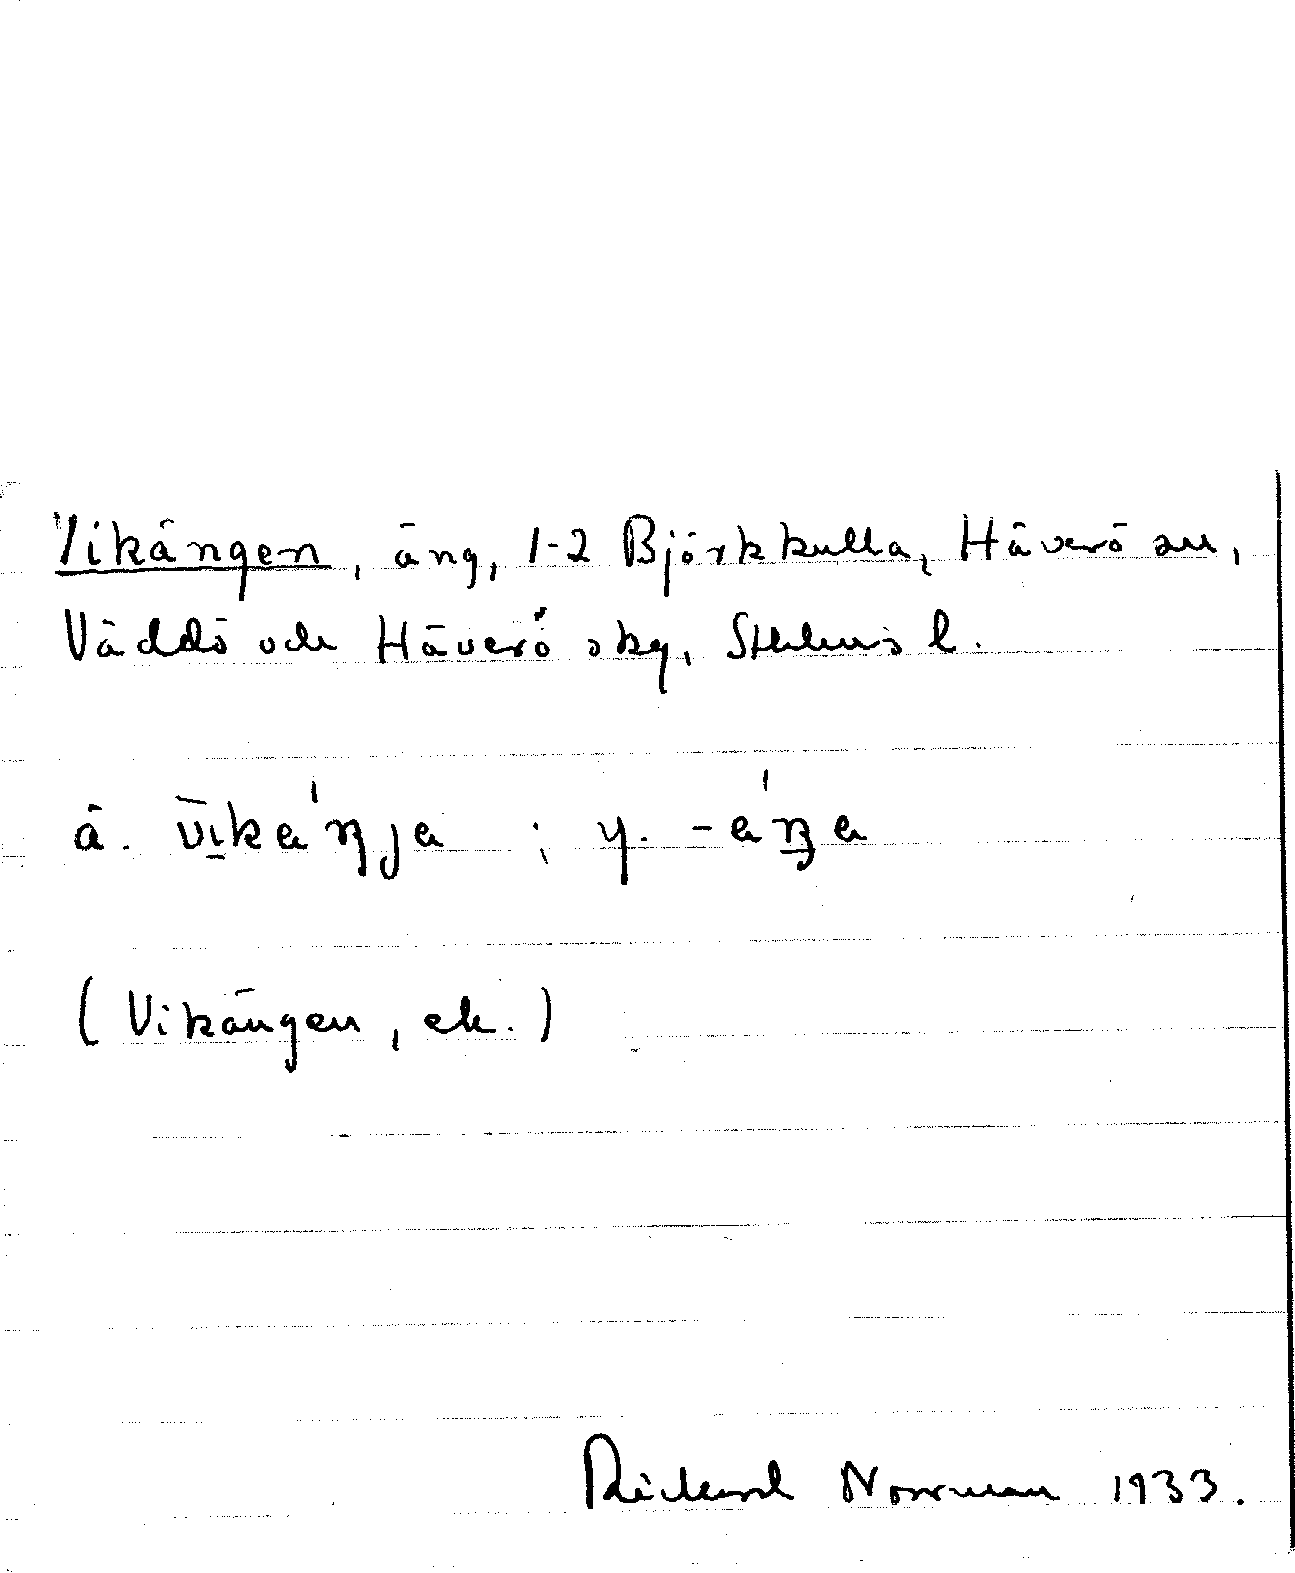 Vikängen, äng, 1-2 Björkkulla, Häverö sn,
Väddö och Häverö skg, Sthlms l.
ä. vikaŋja ; y. -aŋa
(Vikängen, ek.)
Rickard Norrman 1933.